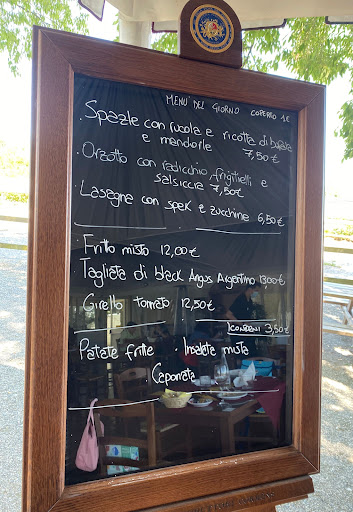 MENU' DEL GIORNO COPERTO 1€
· Spazle con rucola e ricotta di bufala
e mandorle 7,50€
· Orzotto con radicchio, friggitelli e
salsiccia 7,50€
· Lasagne con spek e zucchine 6,50€
Fritto misto 12,00€
Tagliata di black Angus Argentino 13,00€
Girello tonnato 12,50€
CONTORNI 3,50€
· Patate fritte · Insalata mista
· Caponata